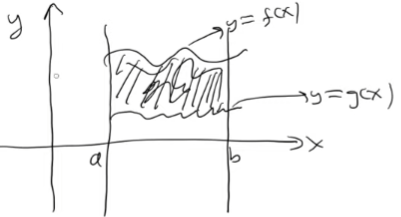 y
y=f(x)
y=g(x)
a
b
x